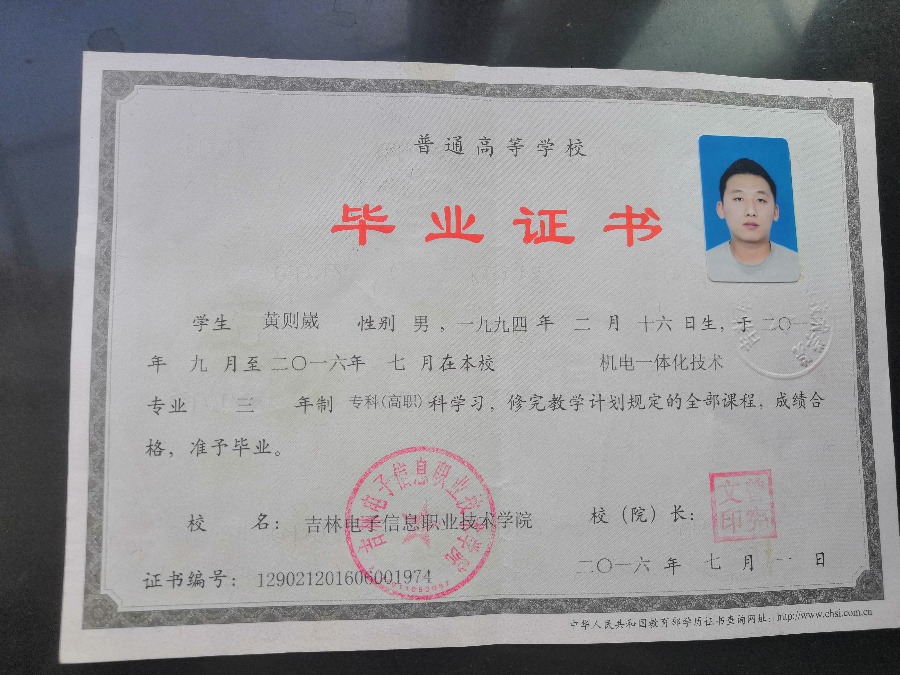 普通高等学校
毕业证书
学生 黄则崴 性别 男，一九九四年 二 月 十六日生，于二〇一
年 九 月至二〇一六年 七 月在本校 机电一体化技术
专业 三 年制 专科(高职)科学习，修完教学计划规定的全部课程，成绩合
格，准予毕业。
吉林电子信息职业技术学院
校 名：吉林电子信息职业技术学院
校（院）长：
证书编号：129021201606001974
二〇一六 年 七 月 一 日
中华人民共和国教育部学历证书查询网址：http://www.chsi.com.cn